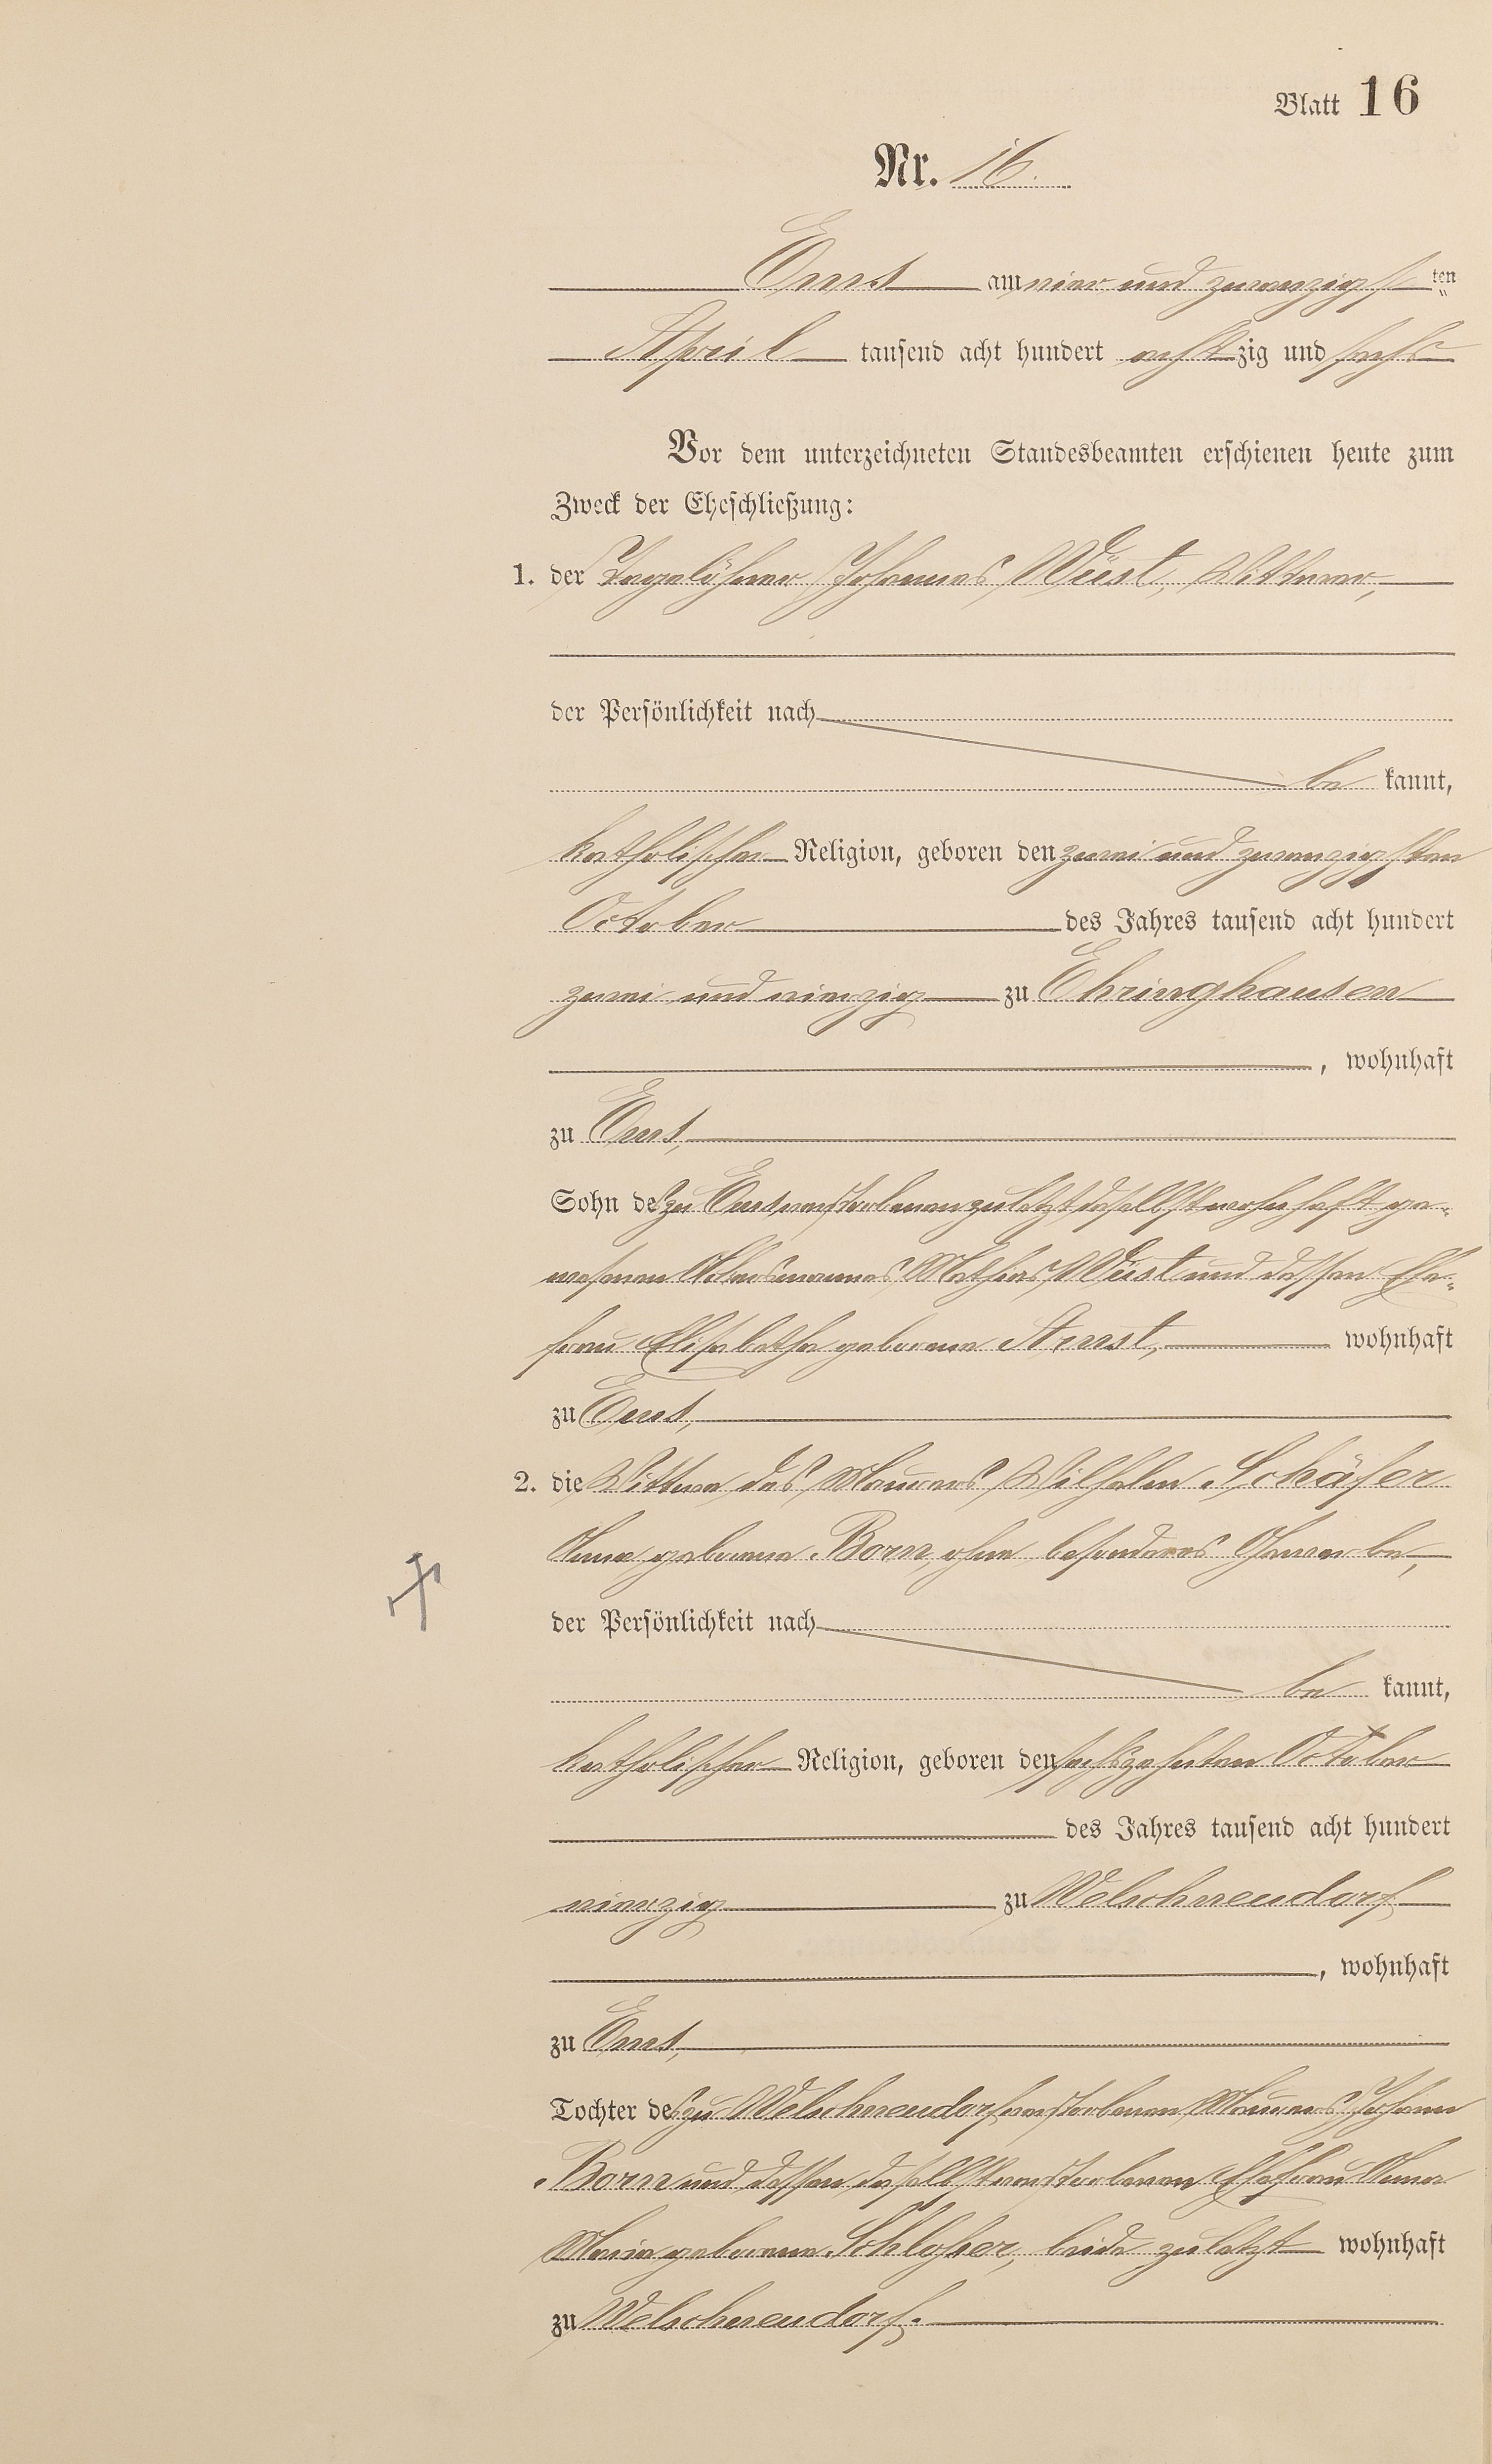 Blatt 16
Nr. 16.
Ems am vier und zwanzigsten
April tausend acht hundert achtzig und sechs
Vor dem unterzeichneten Standesbeamten erschienen heute zum
Zweck der Eheschließung:
1. der Tagelöhner Johannes Wüst, Wittwer,
der Persönlichkeit nach
be kannt,
katholischer Religion, geboren den zwei und zwanzigsten
October des Jahres tausend acht hundert
zwei und vierzig zu Ehringhausen
, wohnhaft
zu Ems,
Sohn des zu Ems verstorbenen zuletzt daselbst wohnhaft ge-
wesenen Mathias Wüst und dessen Ehe-
frau Elisabetha geborene Arnst, wohnhaft
zu Ems,
2. die Wittwe des Maurers Wilhelm Schäfer
Anna geborene Born, ohne besonderes Gewerbe,
der Persönlichkeit nach
be kannt,
katholischer Religion, geboren den sechszehnten October
des Jahres tausend acht hundert
vierzig zu Welschneudorf
, wohnhaft
zu Ems,
Tochter des zu Welschneudorf verstorbenen Maurers Johann
Born und dessen daselbst verstorbenen Ehefrau Anna
Maria geborene Schlosser, beide zuletzt wohnhaft
zu Welschneudorf.